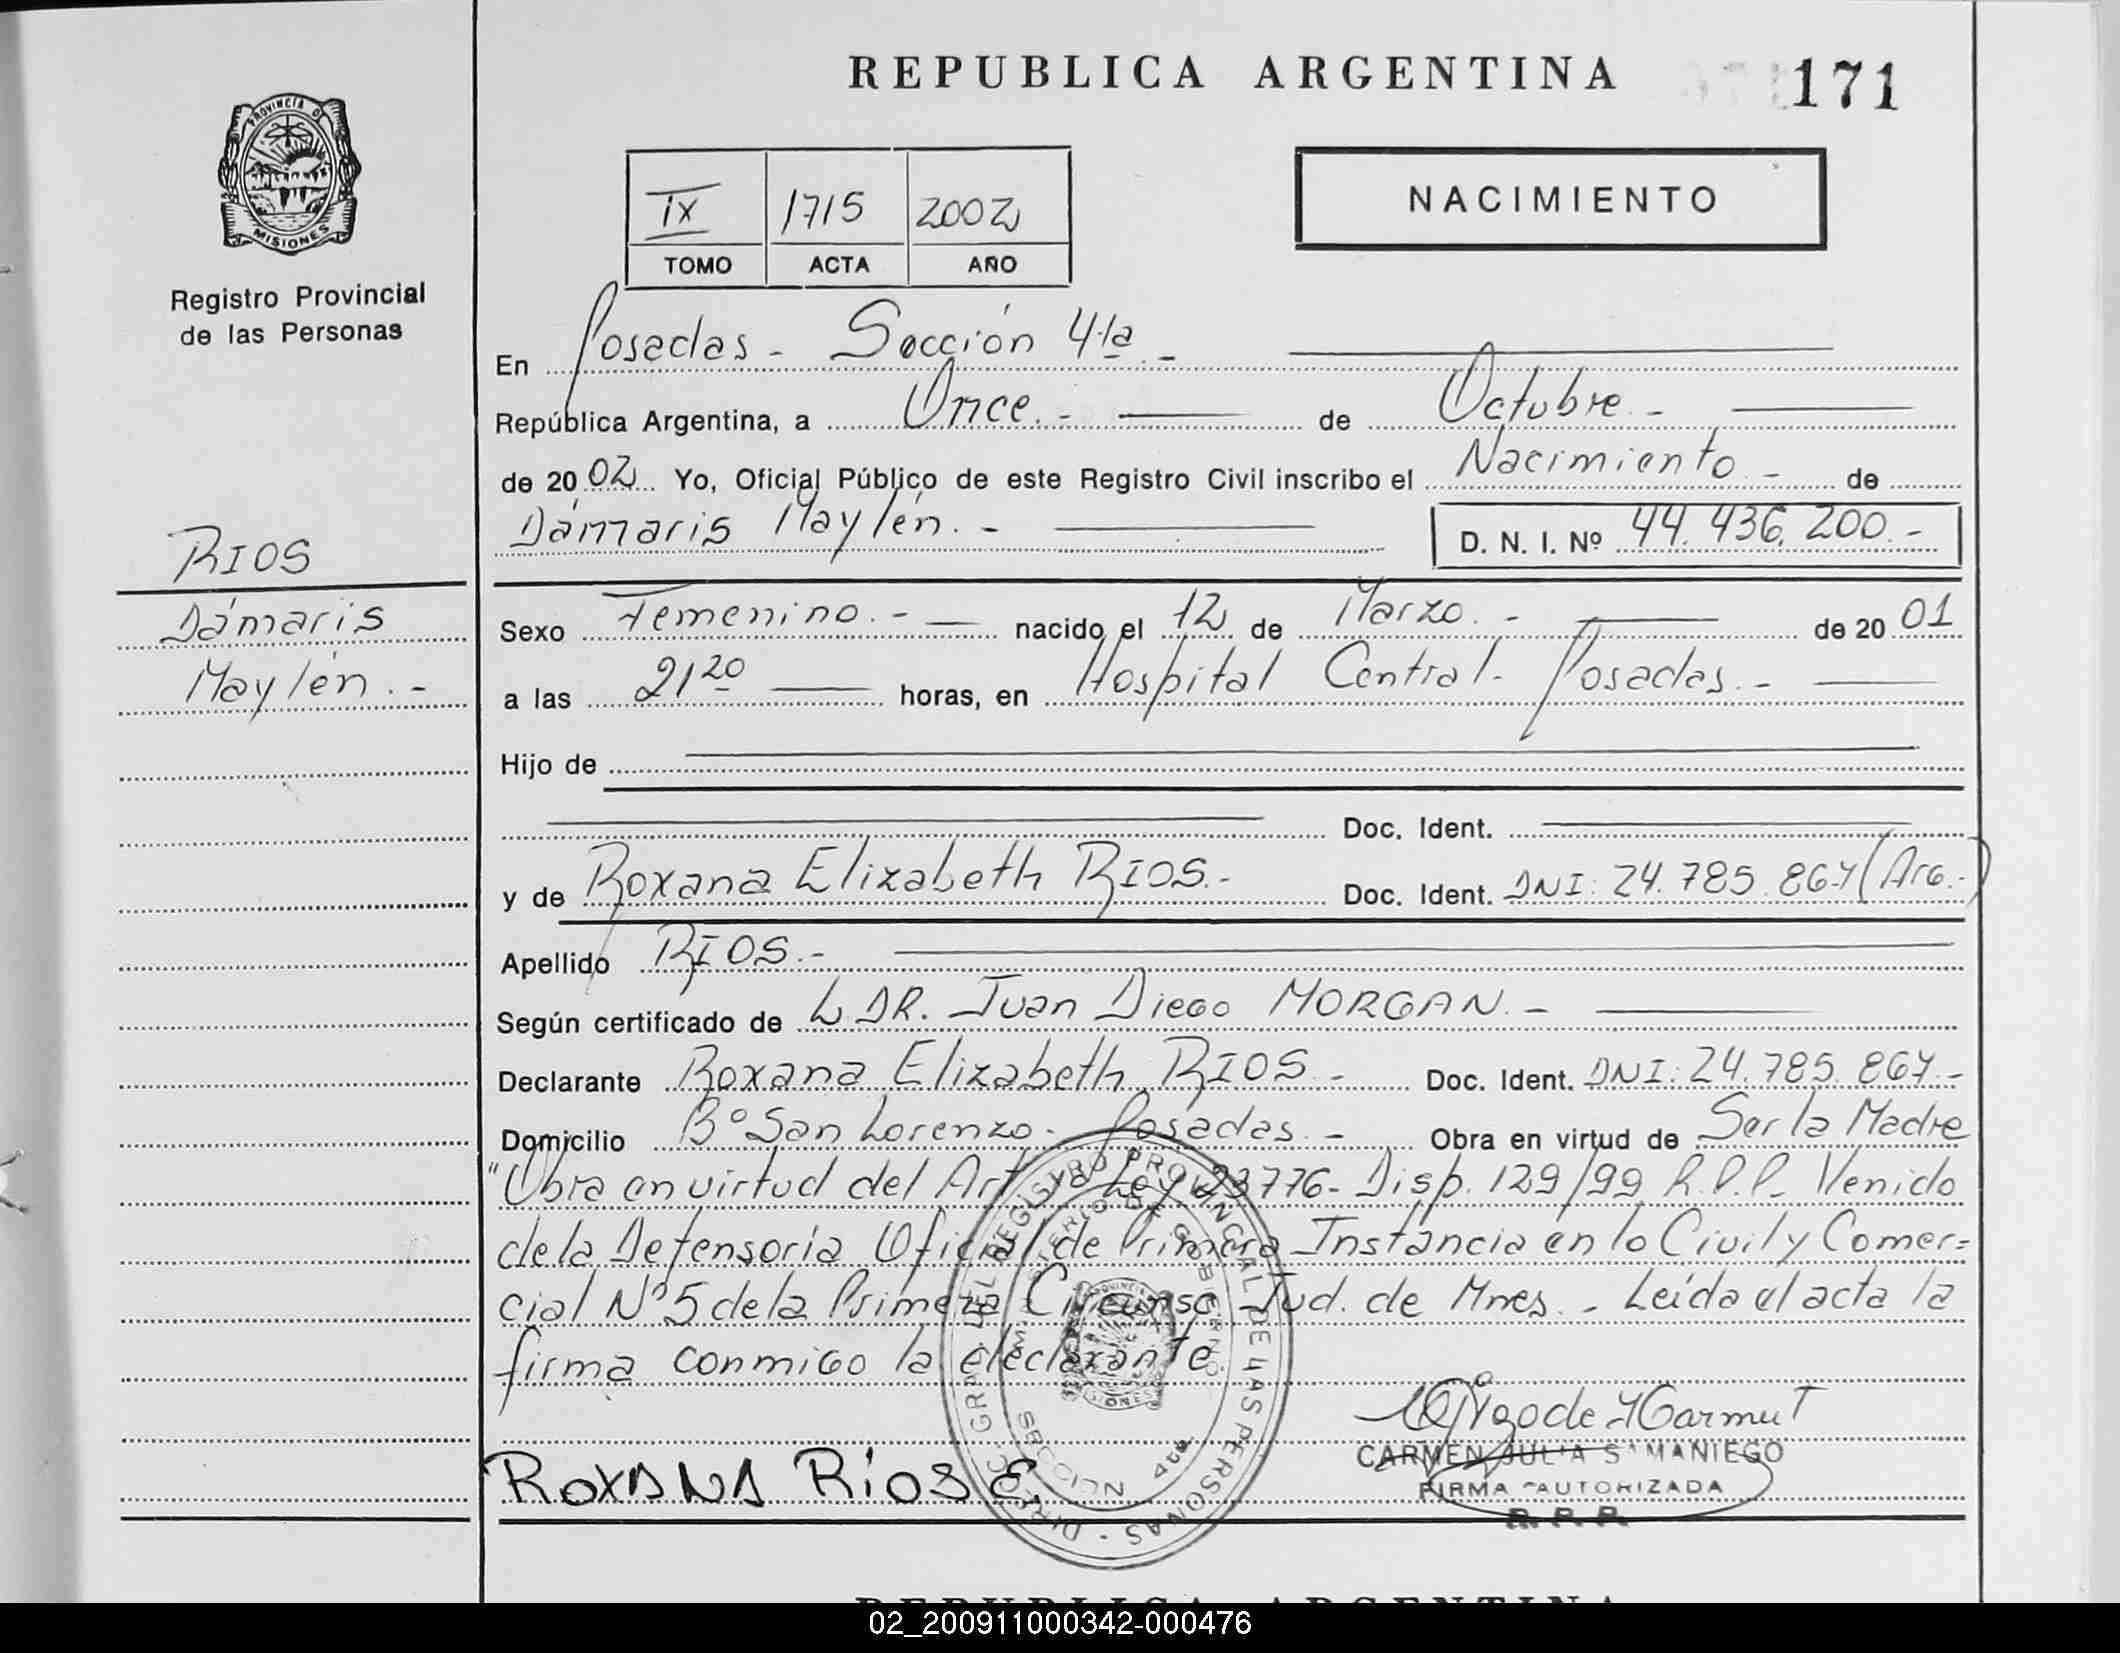 REPUBLICA ARGENTINA
171
PROVINCIA D
MISIONES
Registro Provincial
de las Personas
IX 1715 2002
TOMO ACTA AÑO
NACIMIENTO
En Posadas - Sección 4ta -
República Argentina, a Once.- de Octubre.-
de 2002 Yo, Oficial Público de este Registro Civil inscribo el Nacimiento - de
Dámaris Maylén. - D. N. I. Nº 44.436.200.-
RIOS
Dámaris
Maylén.-
Sexo Femenino.- nacido el 12 de Marzo.- de 2001
a las 21 20 horas, en Hospital Central- Posadas.-
Hijo de
Doc. Ident.
y de Roxana Elizabeth RIOS.- Doc. Ident. DNI: 24.785.867 (Arg.-)
Apellido RIOS.-
Según certificado de DR. Juan Diego MORGAN.-
Declarante Roxana Elizabeth RIOS- Doc. Ident. DNI: 24.785.867.-
Domicilio Bº San Lorenzo- Posadas.- Obra en virtud de Ser la Madre
"Obra en virtud del Art Ley 23776- Disp. 129/99 R.P.P. Venido
de la Defensoría Oficial de Primera Instancia en lo Civil y Comer=
cial Nº 5 de la Primera Circunsc. Jud. de Mnes.- Leída el acta la
firma conmigo la declarante
ROXANA Ríos E
CARMEN JULIA SAMANIEGO
FIRMA AUTORIZADA
R. P. P.
DIRECC. GRAL. DEL REGISTRO PROVINCIAL DE LAS PERSONAS -
MINISTERIO DE GOBIERNO
SECCION 4ta.
REPUBLICA ARGENTINA
02_200911000342-000476